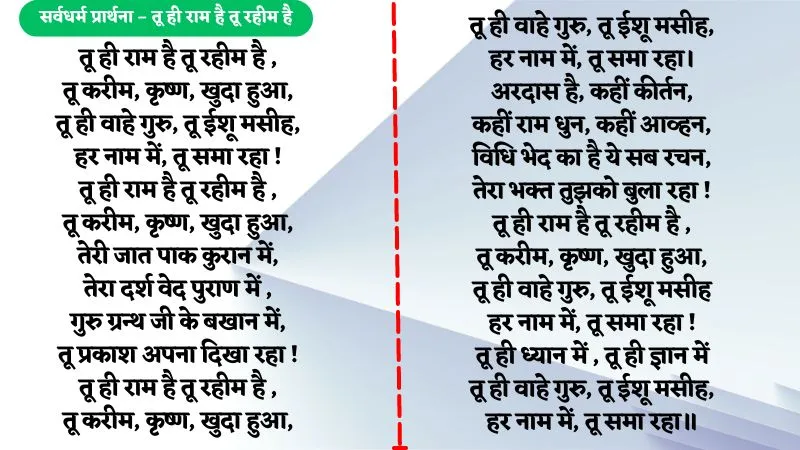 सर्वधर्म प्रार्थना – तू ही राम है तू रहीम है
तू ही राम है तू रहीम है ,
तू करीम, कृष्ण, खुदा हुआ,
तू ही वाहे गुरु, तू ईशू मसीह,
हर नाम में, तू समा रहा !
तू ही राम है तू रहीम है ,
तू करीम, कृष्ण, खुदा हुआ,
तेरी जात पाक कुरान में,
तेरा दर्श वेद पुराण में ,
गुरु ग्रन्थ जी के बखान में,
तू प्रकाश अपना दिखा रहा !
तू ही राम है तू रहीम है ,
तू करीम, कृष्ण, खुदा हुआ,
तू ही वाहे गुरु, तू ईशू मसीह,
हर नाम में, तू समा रहा।
अरदास है, कहीं कीर्तन,
कहीं राम धुन, कहीं आव्हन,
विधि भेद का है ये सब रचन,
तेरा भक्त तुझको बुला रहा !
तू ही राम है तू रहीम है ,
तू करीम, कृष्ण, खुदा हुआ,
तू ही वाहे गुरु, तू ईशू मसीह
हर नाम में, तू समा रहा !
तू ही ध्यान में , तू ही ज्ञान में
तू ही वाहे गुरु, तू ईशू मसीह,
हर नाम में, तू समा रहा॥